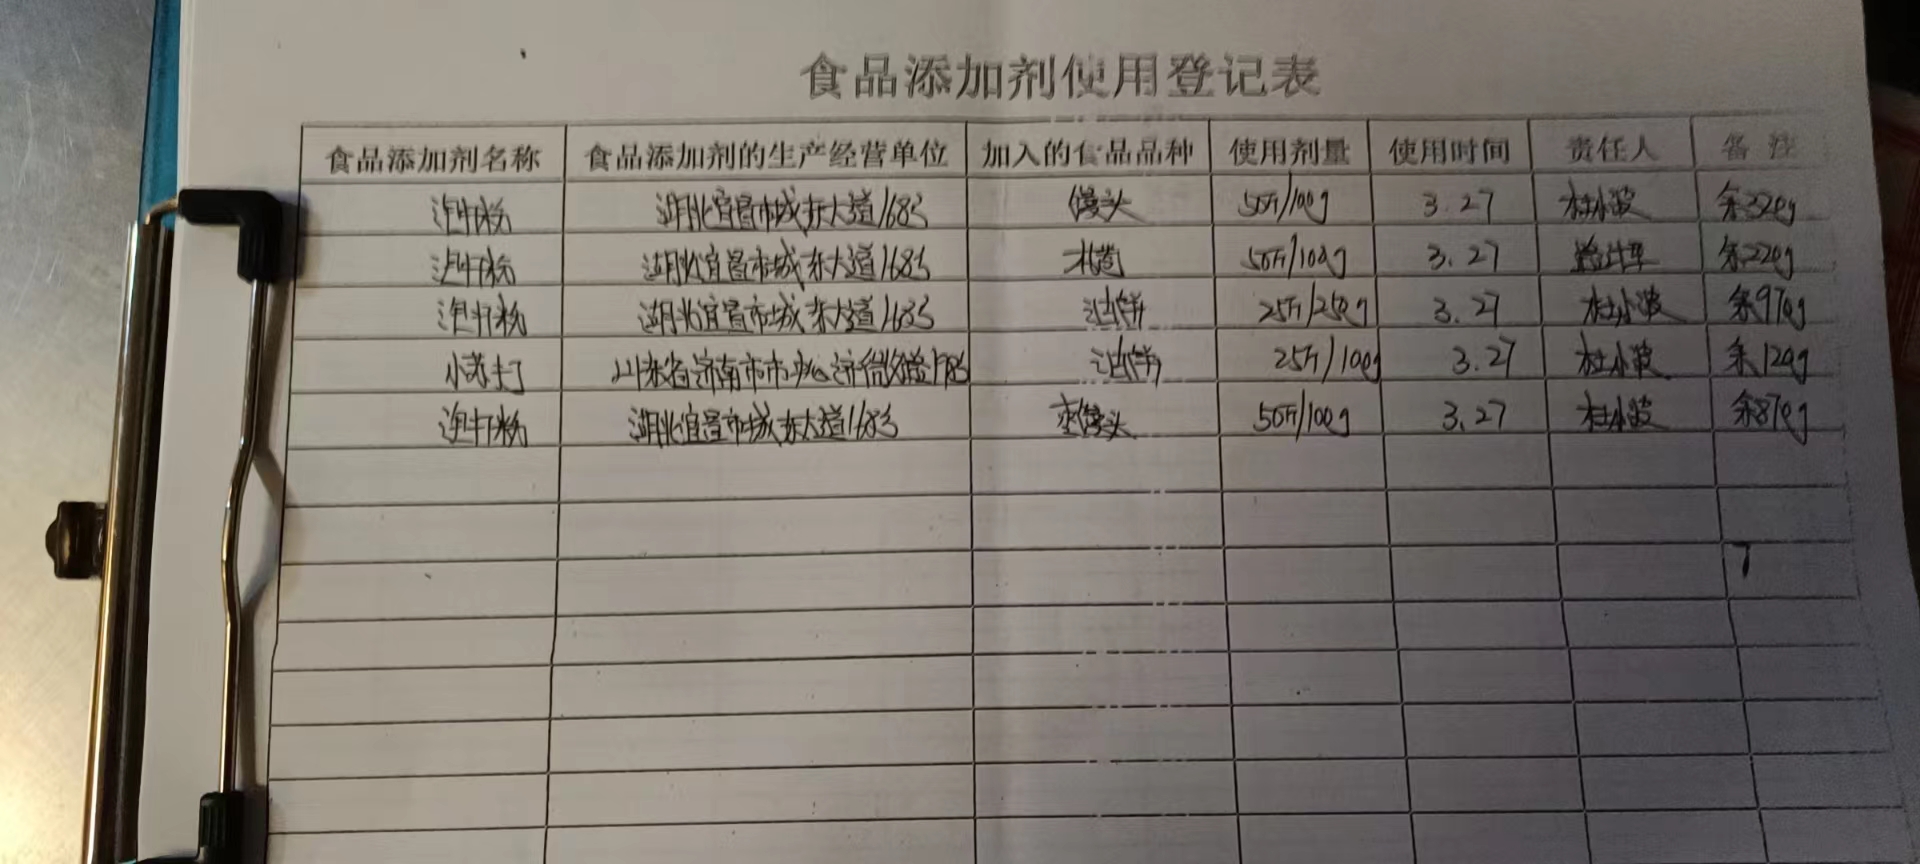 食品添加剂使用登记表
食品添加剂名称 食品添加剂的生产经营单位 加入的食品品种 使用剂量 使用时间 责任人 备注
泡打粉 湖北宜昌市城东大道168号 馒头 50斤/100g 3.27 杜小波 余320g
泡打粉 湖北宜昌市城东大道168号 50斤/100g 3.27 余220g
泡打粉 湖北宜昌市城东大道168号 油饼 25斤/250g 3.27 杜小波 余970g
小苏打 山东省济南市市中心济微路 油饼 25斤/100g 3.27 杜小波 余120g
泡打粉 湖北宜昌市城东大道168号 枣馒头 50斤/100g 3.27 杜小波 余870g